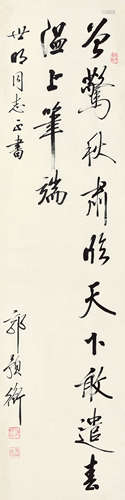 曾惊秋肃临天下敢遣春
温上笔端
世明同志正书
郭预衡